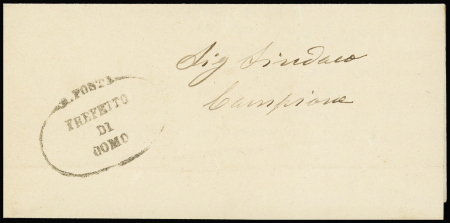 R. POSTA
PREFETTO
DI
COMO
Sig Sindaco
Campione